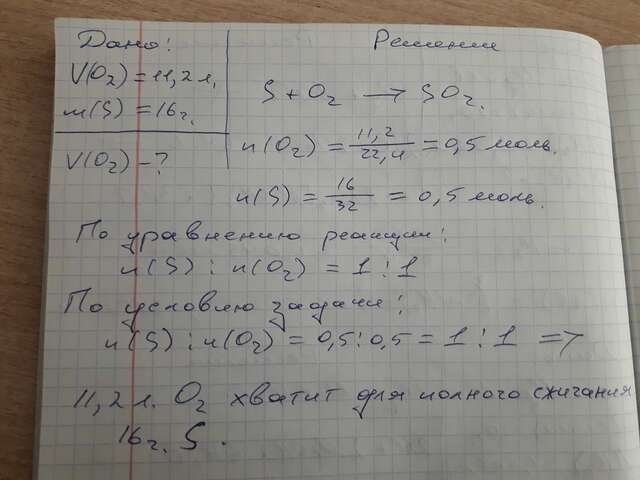 Дано:
Решение
V(O₂) = 11,2 л.
m(S) = 16 г.
V(O₂) - ?
S + O₂ → SO₂.
n(O₂) = 11,2 / 22,4 = 0,5 моль.
n(S) = 16 / 32 = 0,5 моль.
По уравнению реакции:
n(S) : n(O₂) = 1 : 1
По условию задачи:
n(S) : n(O₂) = 0,5 : 0,5 = 1 : 1 =>
11,2 л. O₂ хватит для полного сжигания
16 г. S.